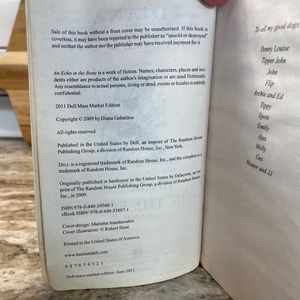 Sale of this book without a front cover may be unauthorized. If this book is
coverless, it may have been reported to the publisher as "unsold or destroyed"
and neither the author nor the publisher may have received payment for it.
An Echo in the Bone is a work of fiction. Names, characters, places and inci-
dents either are products of the author's imagination or are used fictitiously.
Any resemblance to actual persons, living or dead, events or locales is entirely
coincidental.
2011 Dell Mass Market Edition
Copyright © 2009 by Diana Gabaldon
Published in the United States by Dell, an imprint of The Random House
Publishing Group, a division of Random House, Inc., New York.
DELL is a registered trademark of Random House, Inc., and the colophon is a
trademark of Random House, Inc.
Originally published in hardcover in the United States by Delacorte, an im-
print of The Random House Publishing Group, a division of Random House, Inc.,
in 2009.
ISBN 978-0-440-24568-1
eBook ISBN 978-0-440-33887-1
Cover design: Marietta Anastassatos
Cover illustration: © Robert Hunt
Printed in the United States of America
www.bantamdell.com
9 8 7 6 5 4 3 2 1
Dell mass market edition: June 2011
To all my good dogs:
Penny Louise
Tipper John
John
Flip
Archie and Ed
Tippy
Spots
Emily
Ajax
Molly
Gus
Homer and JJ